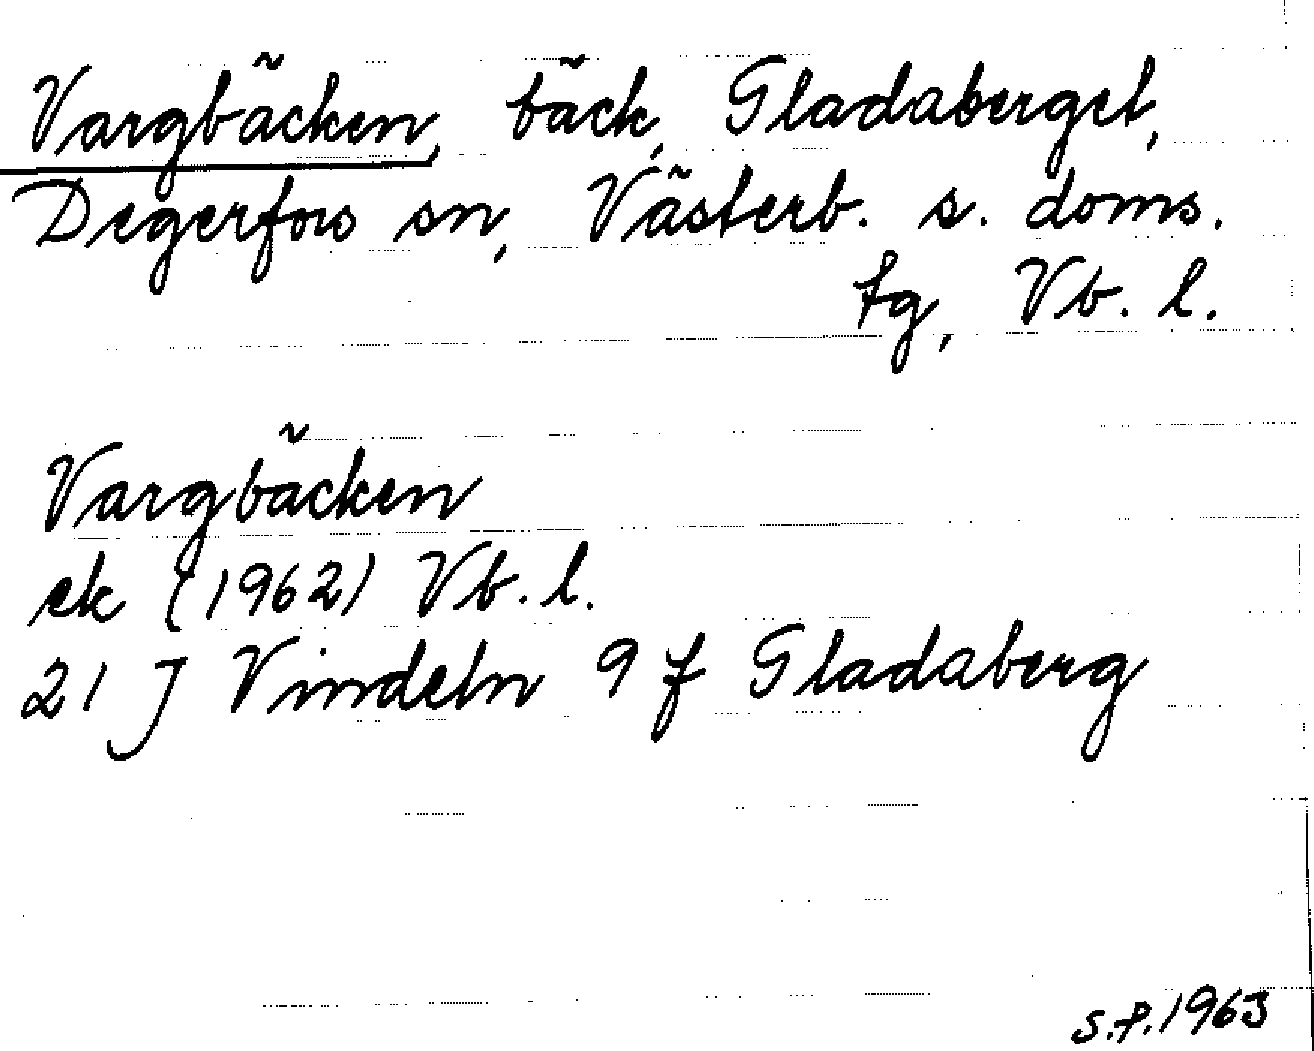 Vargbäcken, bäck, Gladaberget,
Degerfors sn, Västerb. s. doms.
fg, Vb. l.
Vargbäcken
ek (1962) Vb. l.
21 J Vindeln 9 f Gladaberg
S.F. 1963